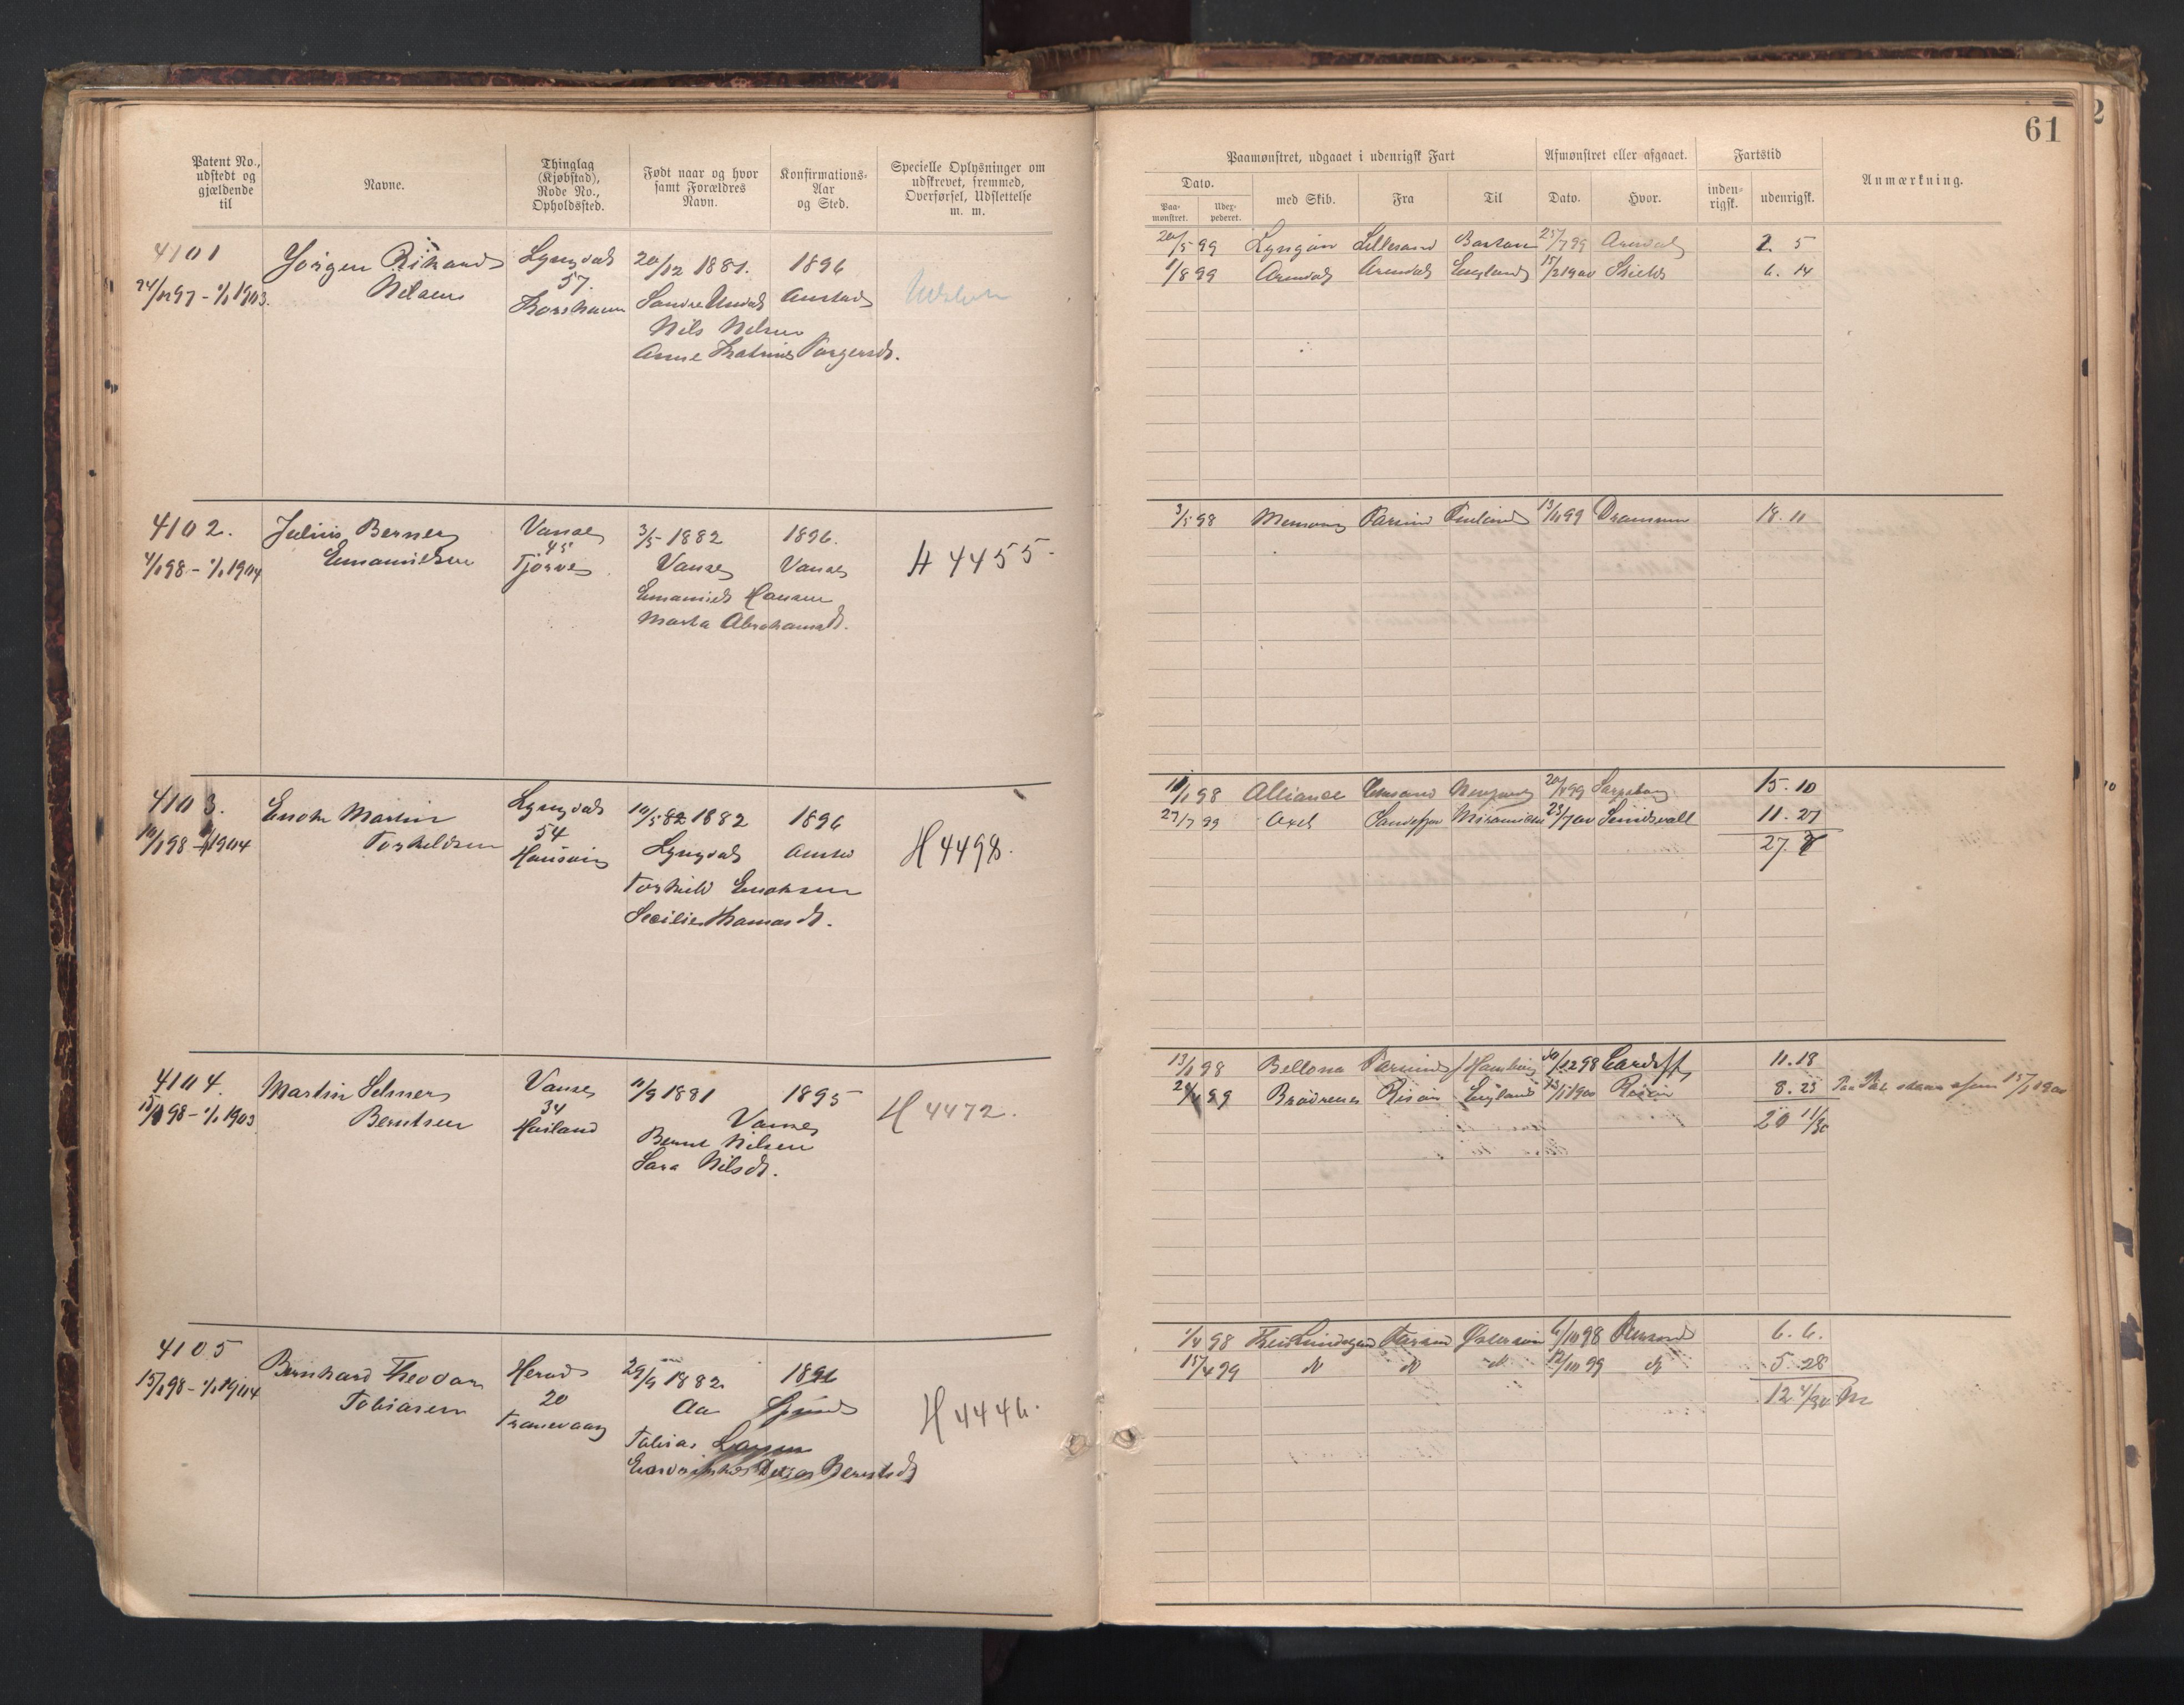 61
Patent No., udstedt og gjældende til
Navne.
Thinglag (Kjøbstad), Rode No., Opholdssted.
Født naar og hvor samt Forældres Navn.
Konfirmations-Aar og Sted.
Specielle Oplysninger om udskrevet, fremmed, Overførsel, Udslettelse m. m.
Paamønstret, udgaaet i udenrigsk Fart
Dato.
Paa-mønstret.
Udex-pederet.
med Skib.
Fra
Til
Afmønstret eller afgaaet.
Dato.
Hvor.
Fartstid
inden-rigsk.
udenrigsk.
Anmærkning.
4101
24/12 97 - 1/1 1903.
Jørgen Rikard
Nilsen
Lyngdal
57.
Korshavn
20/12 1881.
Søndre Undal
Nils Nilsen
Anne Katrine Torgersdt.
1896
Austad
20/5 99 Lyngør Lillesand 25/7 99 Arendal 2. 5
1/8 99 Arendal Arendal England 15/2 1900 Shields 6. 14
4102.
4/1 98 - 1/1 1904
Julius Berner
Emanuelsen
Vanse
45
Tjørve
3/5 1882
Vanse
Emanuel Hansen
Marta Abrahamsdt.
1896.
Vanse
H 4455.
3/5 98 Farsund 13/11 99 Drammen 18. 11
4103.
10/1 98 - 1/1 1904
Enok Martin
Torkildsen
Lyngdal
54
10/5 82 1882
Lyngdal
Torkild Enoksen
Secilie Thomasdt.
1896
Austad
H 4498.
11/1 98 Alliance 20/4 99 Sarpsborg 15. 10
27/7 99 Axel Sandefjor 23/7 00 11. 27
27. 7
4104.
13/1 98 - 1/1 1903
Martin Selmer
Berntsen
Vanse
34
Hauland
11/9 1881
Vanse
Bernt Nilsen
Sara Nilsdt.
1895
H 4472.
13/1 98 Bellona Farsund Hamburg /12 98 Cardiff 11. 18
Brødrene Risør England Risør 8. 23
20 11/30
15/1 1900
4105
15/1 98 - 1/1 1904
Bernhard Theodor
Tobiasen
Herad
20
Tranevaag
29/9 1882
Aa
Tobias Larsen
Berntsdt
1896
H 4446.
1/4 98 Farsund Østersøen 6/10 98 6. 6.
15/4 99 do do do 12/10 99 do 5. 28
12 4/30